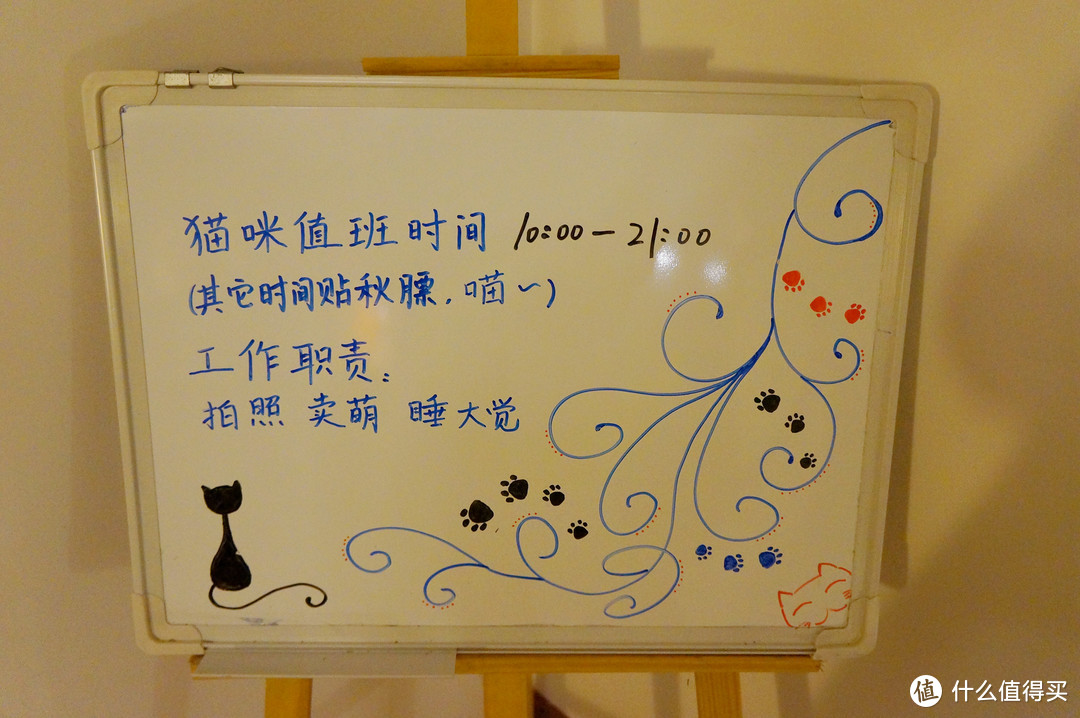 猫咪值班时间 10:00-21:00
(其它时间贴秋膘,喵~)
工作职责:
拍照 卖萌 睡大觉
值 什么值得买